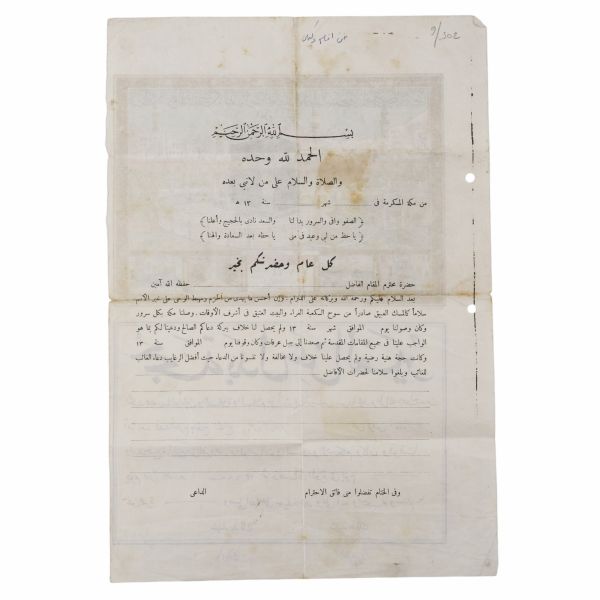 9/302
بسم الله الرحمن الرحيم
الحمد لله وحده
والصلاة والسلام على من لا نبي بعده
من مكة المكرمة فى شهر سنة ١٣ هـ
﴿ الصفو وافى والسرور بدا لنا والسعد نادى بالحجيج وأعلنا ﴾
﴿ يا حظ من لبى وعيد فى منى يا حظه بعد السعادة والهنا ﴾
كل عام وحضرتكم بخير
حضرة محترم المقام الفاضل حفظه الله آمين
بعد السلام عليكم ورحمة الله وبركاته على الدوام . فإن أحسن ما يبدى من الحرم ومهبط الوحى على خير الأنام
سلاماً كالمسك العبيق صادراً من سوح الكعبة الغراء والبيت العتيق فى أشرف الأوقات . وصلنا مكة بكل سرور
وكان وصولنا يوم الموافق شهر سنة ١٣ ولم يحصل لنا خلاف ببركة دعاكم الصالح ودعينا لكم بما هو
الواجب علينا فى جميع المقامات المقدسة ثم صعدنا إلى جبل عرفات وكان وقوفنا يوم الموافق سنة ١٣
وكانت حجة هنية رضية ولم يحصل علينا خلاف ولا مخالفة ولا تنسونا من الدعاء حيث أفضل الرغايب دعاء الغائب
للغائب وبلغوا سلامنا لحضرات الأفاضل
وفى الختام تفضلوا منى فائق الاحترام الداعى